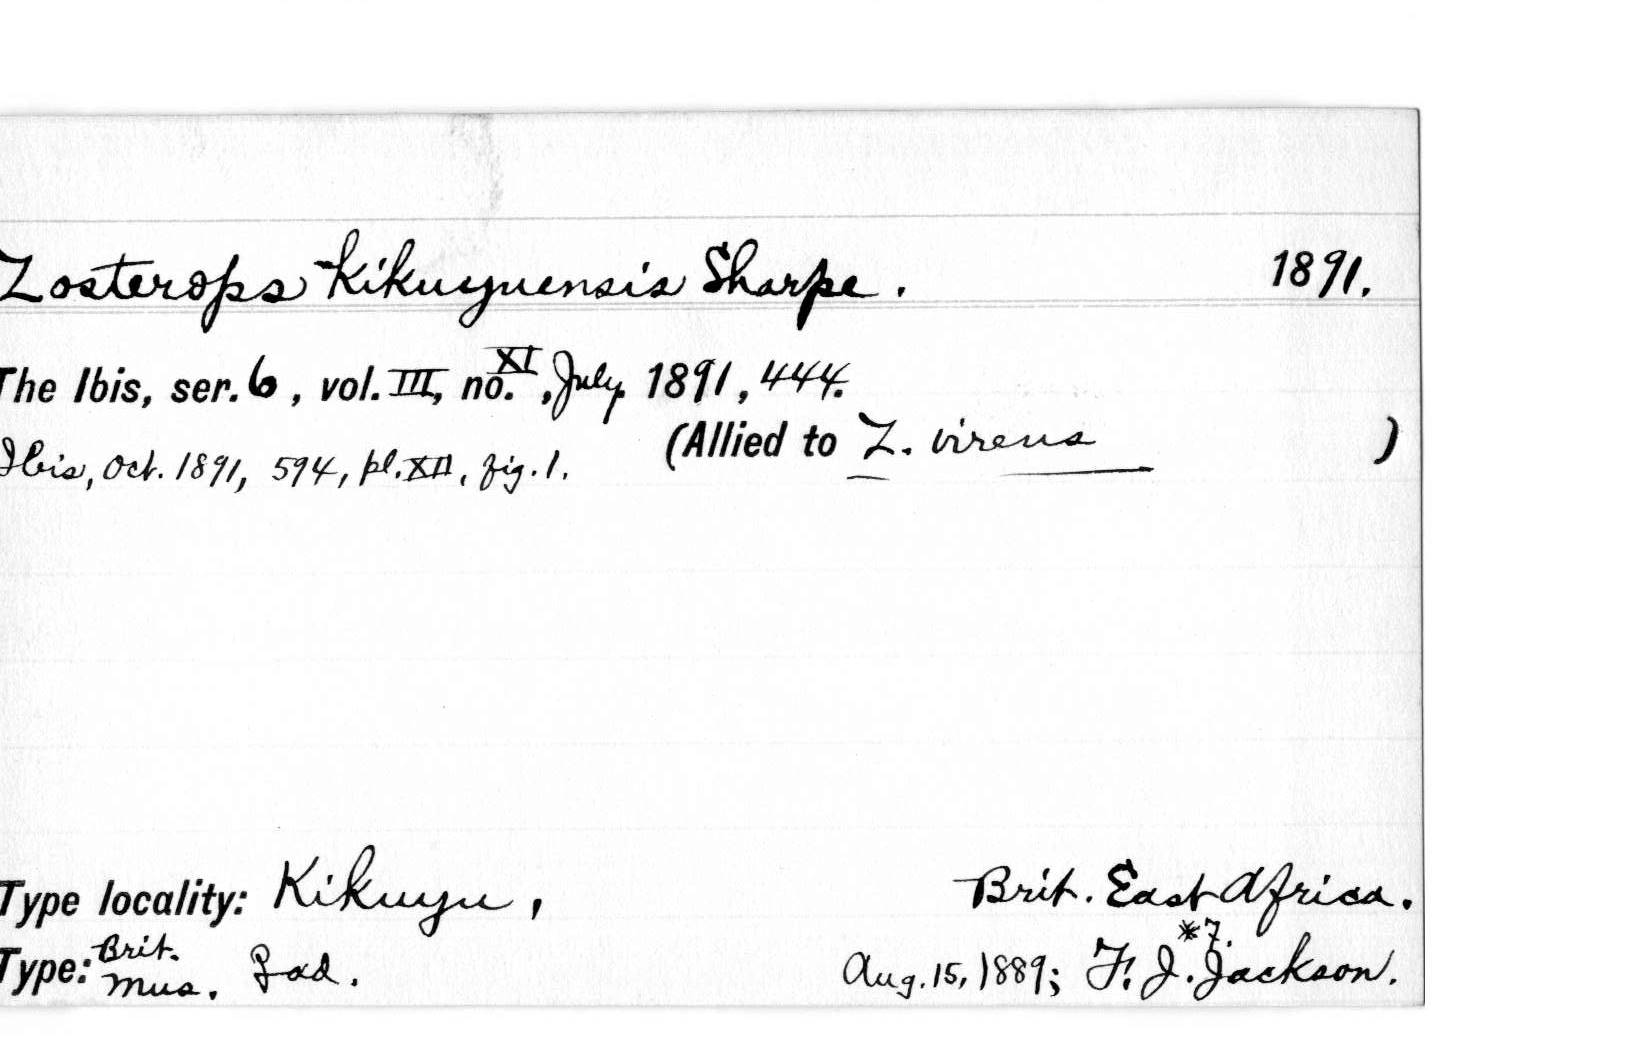 Zosterops kikuyuensis Sharpe. 1891.
The Ibis, ser. 6, vol. III, no. XI, July 1891, 444.
(Allied to Z. virens )
Ibis, Oct. 1891, 594, pl. XII, fig. 1.
Type locality: Kikuyu, Brit. East Africa.
Type: Brit. Mus. ad. Aug. 15, 1889; F. J. Jackson. *7.